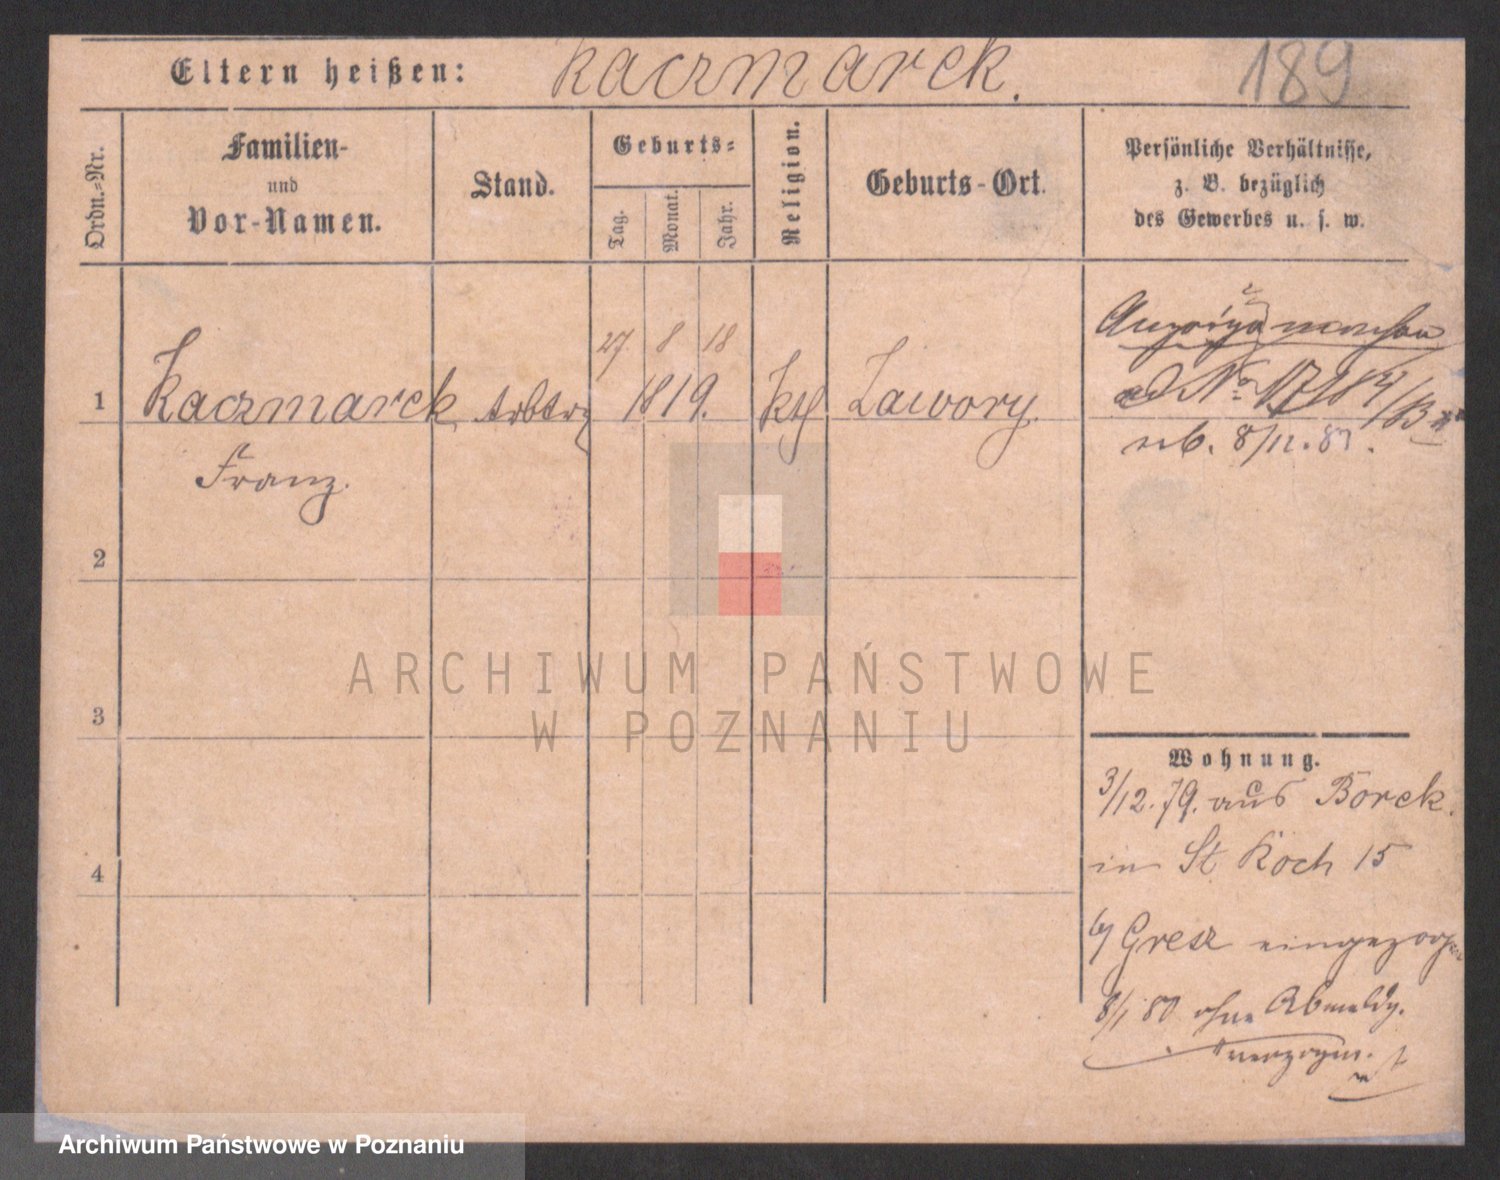 Eltern heißen: Kaczmarek. 189
Ordn.-Nr.
Familien-
und
Vor-Namen.
Stand.
Geburts-
Tag. Monat. Jahr.
Religion.
Geburts-Ort.
Persönliche Verhältnisse,
z. B. bezüglich
des Gewerbes u. s. w.
27 8 18
1 Kaczmarek Arbtr 1819. kth Zawory.
Franz.
ad No
8/12.
2
3
4
Wohnung.
3/12. 79. aus Borek
in St Roch 15
Gresz eingezogen
8/1 80 ohne Abmeldg.
verzogen.
ARCHIWUM PAŃSTWOWE
W POZNANIU
Archiwum Państwowe w Poznaniu